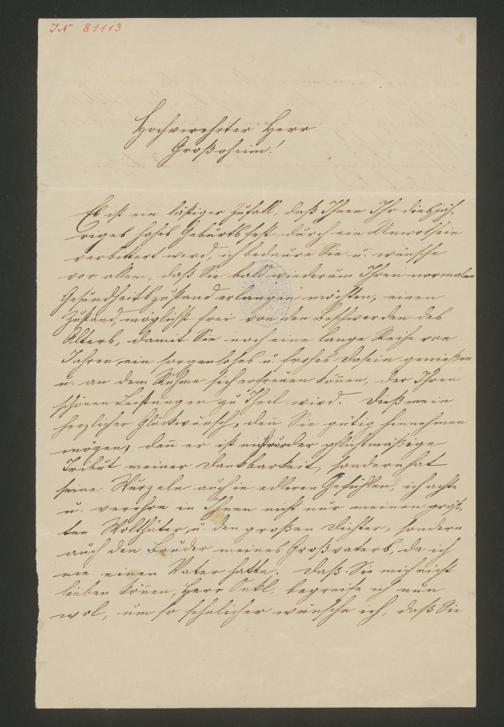 IN 81113
Hochverehrter Herr
Großoheim!
Es ist ein lästiger Zufall, daß Ihnen Ihr diesjäh-
riges hohes Geburtsfest durch ein Unwolsein
verbittert wird, ich bedaure Sie u. wünsche
vor allem, daß Sie bald wiederum Ihren normalen
Gesundheitszustand erlangen möchten, einen
Zustand möglichst frei von den Beschwerden des
Alters, damit Sie noch eine lange Reihe von
Jahren ein sorgenloses u. frohes Dasein genießen
u. an dem Ruhme sich erfreuen können, der Ihren
schönen Leistungen zu Theil wird. Dieß mein
herzlicher Glückwunsch, den Sie gütig hinnehmen
mögen, denn er ist nicht der pflichtmäßige
Tribut meiner Dankbarkeit, sondern hat
seine Wurzeln auch in edleren Gefühlen, ich achte
u. verehre in Ihnen nicht nur meinen größ-
ten Wolthäter u. den großen Dichter, sondern
auch den Bruder meines Großvaters, da ich
nie einen Vater hatte. Daß Sie mich nicht
lieben können, Herr Onkl, begreife ich nun
wol, um so sehnlicher wünsche ich, daß Sie